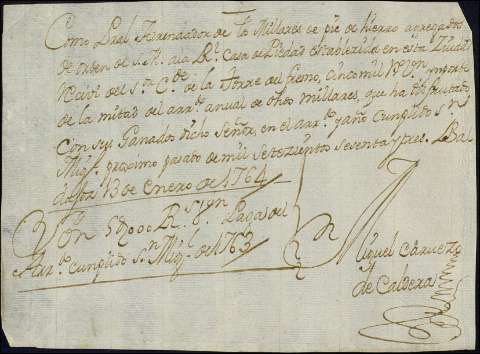 Como Real Arrendador de los Millares de pie de hierro agregados
de orden de S. M. a la Rl. Casa de Piedad establecida en esta Ciudad
Recivi del Sr. Cde. de la Torre del fresno, cinco mil Rs. Vn. importe
de la mitad del arrdo. anual de ohos millares, que ha disfrutado
con sus Ganados dicho Señor, en el arrdo. y año cumplido Sn.
Migl. proximo pasado de mil Setezientos Sesenta y tres. Ba
dajoz 13 de Enero de 1764
Son 5000 Rs. Vn. Pagas del
Arrdo. cumplido Sn. Migl. de 1763
Miguel
y de Calderon